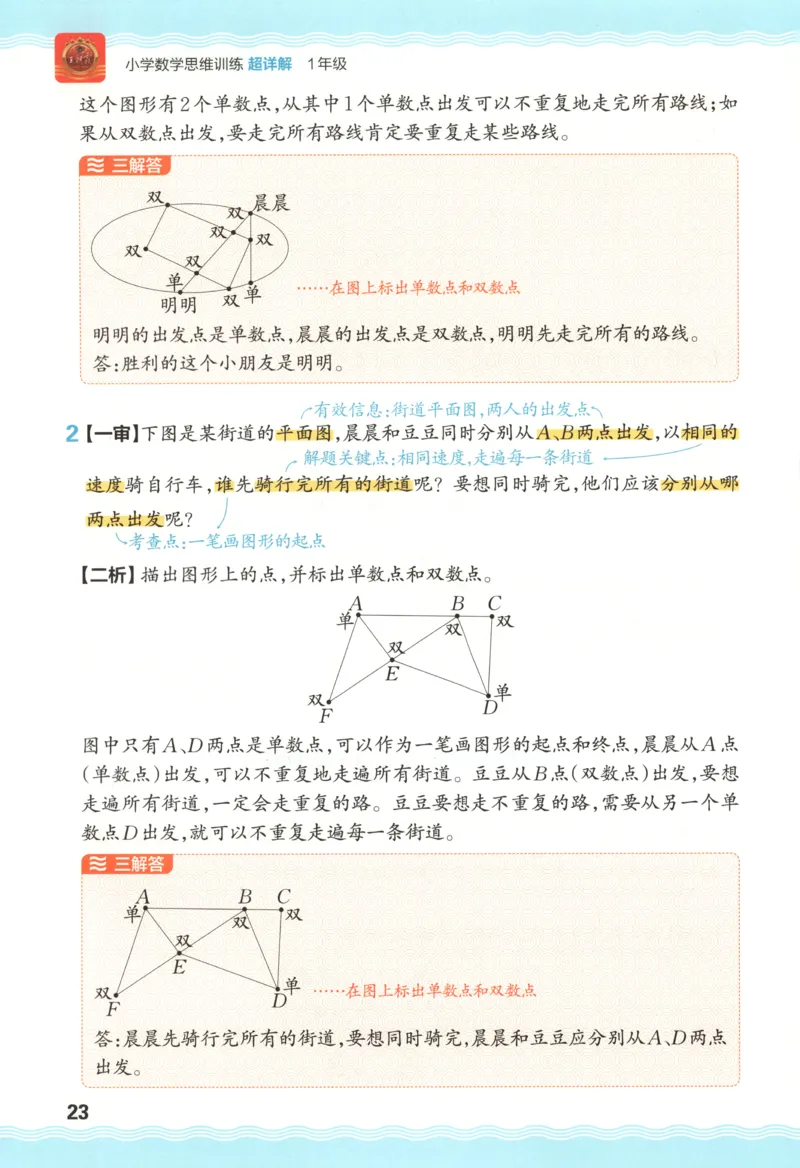 小学数学思维训练 超详解 1年级
这个图形有2个单数点,从其中1个单数点出发可以不重复地走完所有路线;如
果从双数点出发,要走完所有路线肯定要重复走某些路线。
三解答
双 双 晨晨
双 双
双 双
单 单
明明 双
……在图上标出单数点和双数点
明明的出发点是单数点,晨晨的出发点是双数点,明明先走完所有的路线。
答:胜利的这个小朋友是明明。
有效信息:街道平面图,两人的出发点
2【一审】下图是某街道的平面图,晨晨和豆豆同时分别从A、B两点出发,以相同的
解题关键点:相同速度,走遍每一条街道
速度骑自行车,谁先骑行完所有的街道呢?要想同时骑完,他们应该分别从哪
两点出发呢?
考查点:一笔画图形的起点
【二析】描出图形上的点,并标出单数点和双数点。
A B C
单 双 双
双
E
双 单
F D
图中只有A、D两点是单数点,可以作为一笔画图形的起点和终点,晨晨从A点
(单数点)出发,可以不重复地走遍所有街道。豆豆从B点(双数点)出发,要想
走遍所有街道,一定会走重复的路。豆豆要想走不重复的路,需要从另一个单
数点D出发,就可以不重复走遍每一条街道。
三解答
A B C
单 双 双
双
E
双 单
F D
……在图上标出单数点和双数点
答:晨晨先骑行完所有的街道,要想同时骑完,晨晨和豆豆应分别从A、D两点
出发。
23